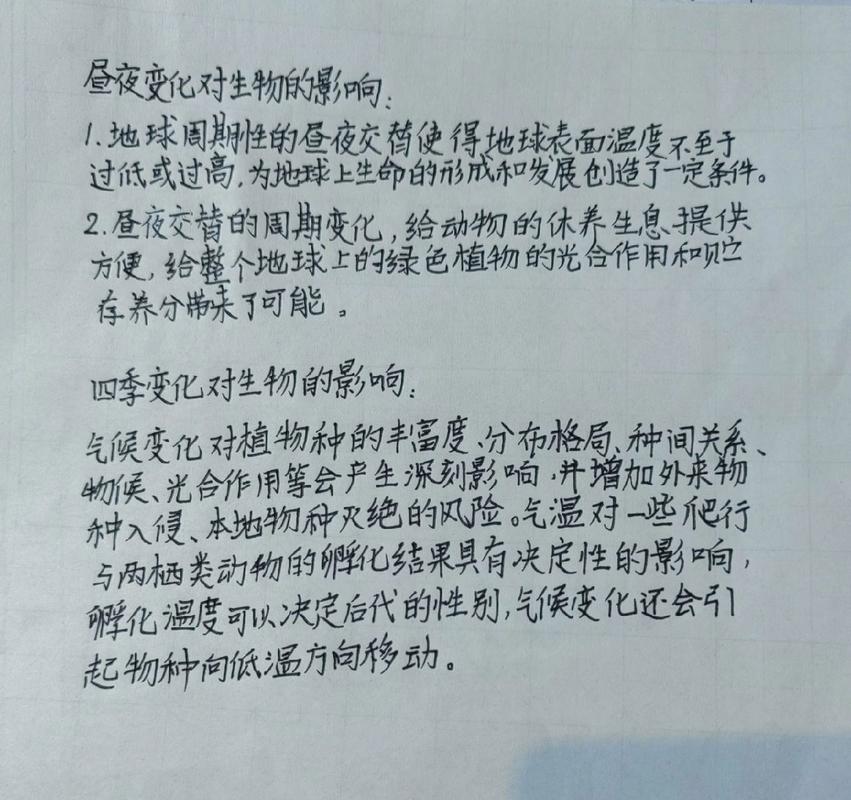 昼夜变化对生物的影响:
1.地球周期性的昼夜交替使得地球表面温度不至于
过低或过高,为地球上生命的形成和发展创造了一定条件。
2.昼夜交替的周期变化,给动物的休养生息提供
方便,给整个地球上的绿色植物的光合作用和贮
存养分带来了可能。
四季变化对生物的影响:
气候变化对植物种的丰富度、分布格局、种间关系、
物候、光合作用等会产生深刻影响,并增加外来物
种入侵、本地物种灭绝的风险。气温对一些爬行
与两栖类动物的孵化结果具有决定性的影响,
孵化温度可以决定后代的性别,气候变化还会引
起物种向低温方向移动。